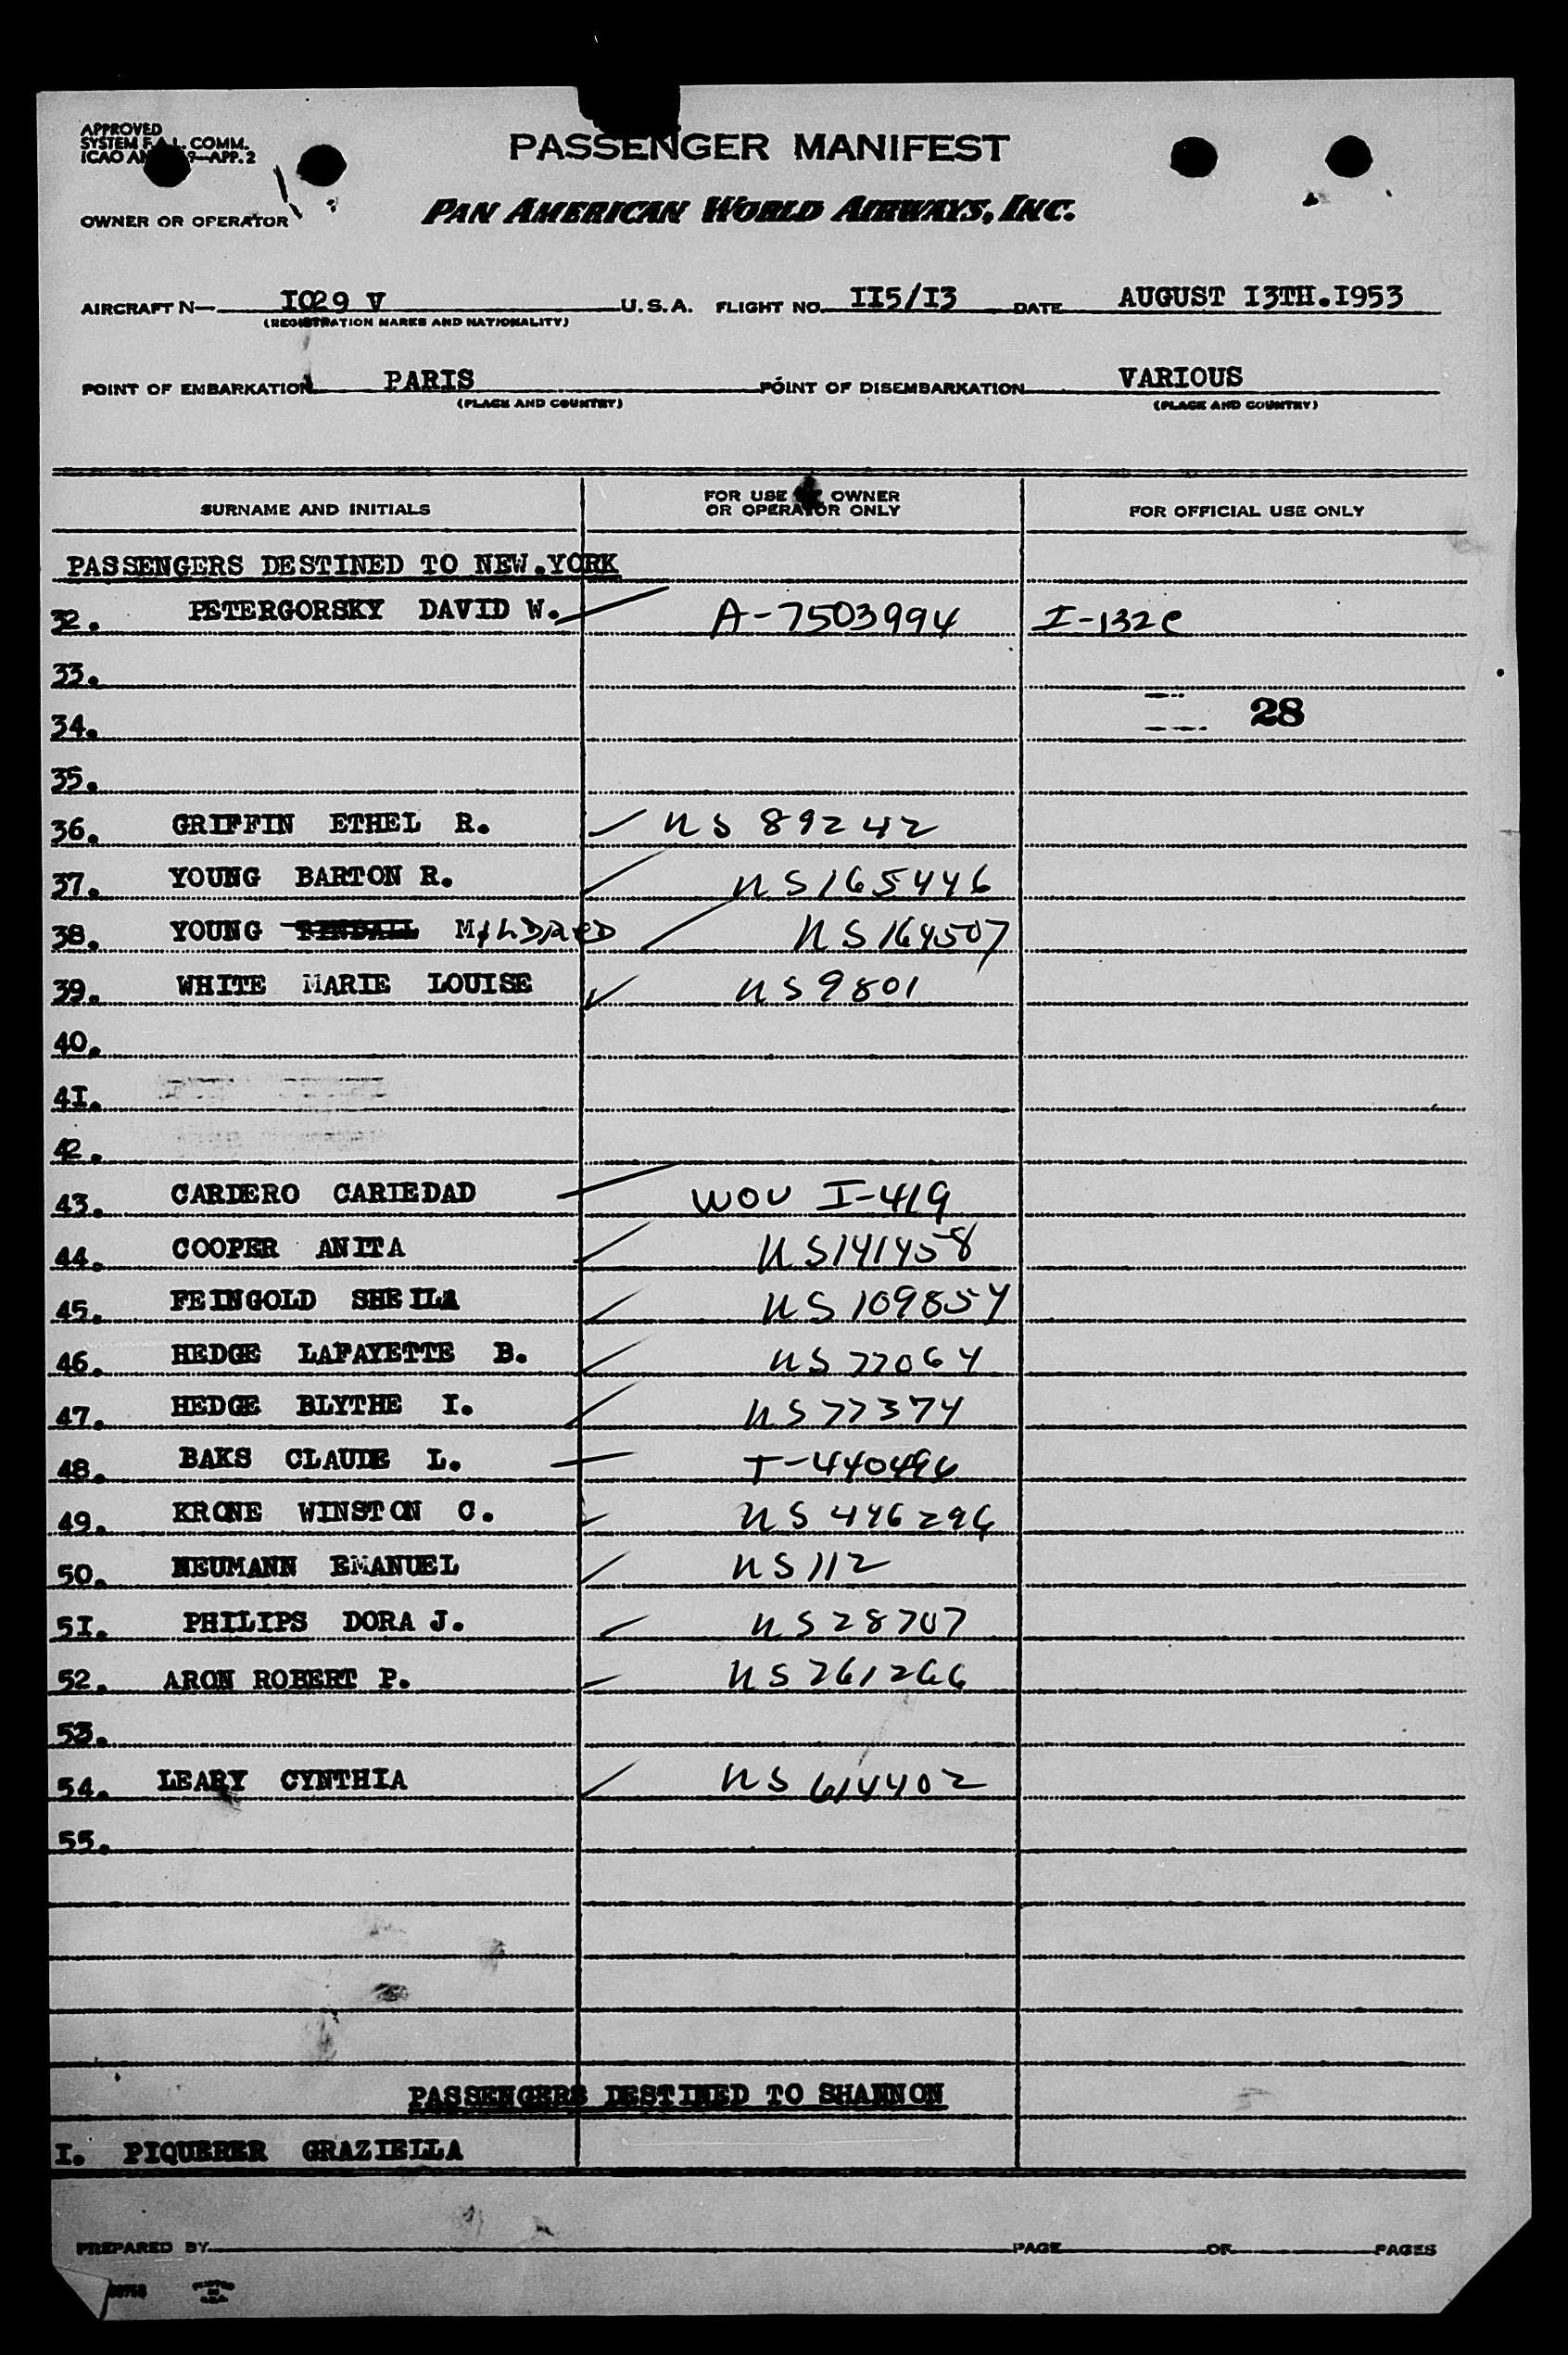 APPROVED
SYSTEM F.A.L. COMM.
ICAO AN 9—APP. 2
PASSENGER MANIFEST
OWNER OR OPERATOR PAN AMERICAN WORLD AIRWAYS, INC.
AIRCRAFT N— I029 V U.S.A. FLIGHT NO. II5/I3 DATE AUGUST I3TH.I953
(REGISTRATION MARKS AND NATIONALITY)
POINT OF EMBARKATION PARIS POINT OF DISEMBARKATION VARIOUS
(PLACE AND COUNTRY) (PLACE AND COUNTRY)
SURNAME AND INITIALS FOR USE OWNER OR OPERATOR ONLY FOR OFFICIAL USE ONLY
PASSENGERS DESTINED TO NEW.YORK
32. PETERGORSKY DAVID W. A-7503994 I-132e
33.
34. 28
35.
36. GRIFFIN ETHEL R. US 89242
37. YOUNG BARTON R. US165446
38. YOUNG MiLDRED US164507
39. WHITE MARIE LOUISE US9801
40.
4I.
42.
43. CARDERO CARIEDAD WOV I-419
44. COOPER ANITA US141458
45. FEINGOLD SHEILA US 109854
46. HEDGE LAFAYETTE B. US 77064
47. HEDGE BLYTHE I. US77374
48. BAKS CLAUDE L. T-440496
49. KRONE WINSTON C. US 446296
50. NEUMANN EMANUEL US112
5I. PHILIPS DORA J. US28707
52. ARON ROBERT P. US 261266
53.
54. LEARY CYNTHIA US 614402
55.
PASSENGERS DESTINED TO SHANNON
I. PIQUERER GRAZIELLA
PREPARED BY PAGE OF PAGES